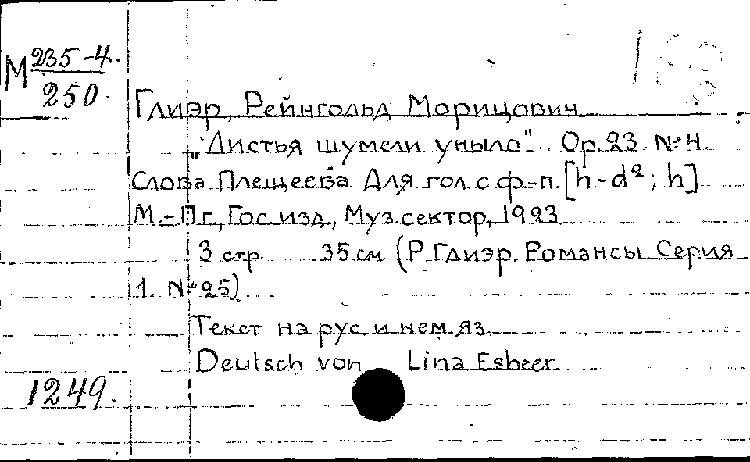 М 235-4
250.
Глиэр, Рейнгольд Морицович
"Листья шумели уныло". Op. 23 № 4
Слова Плещеева Для гол с ф-п. [h-d²; h]
М.-Пг, Гос изд, Муз сектор, 1923
3 стр 35 см (Р. Глиэр. Романсы Серия
1. № 25)
Текст на рус и нем яз
Deutsch von Lina Esbeer
1249.